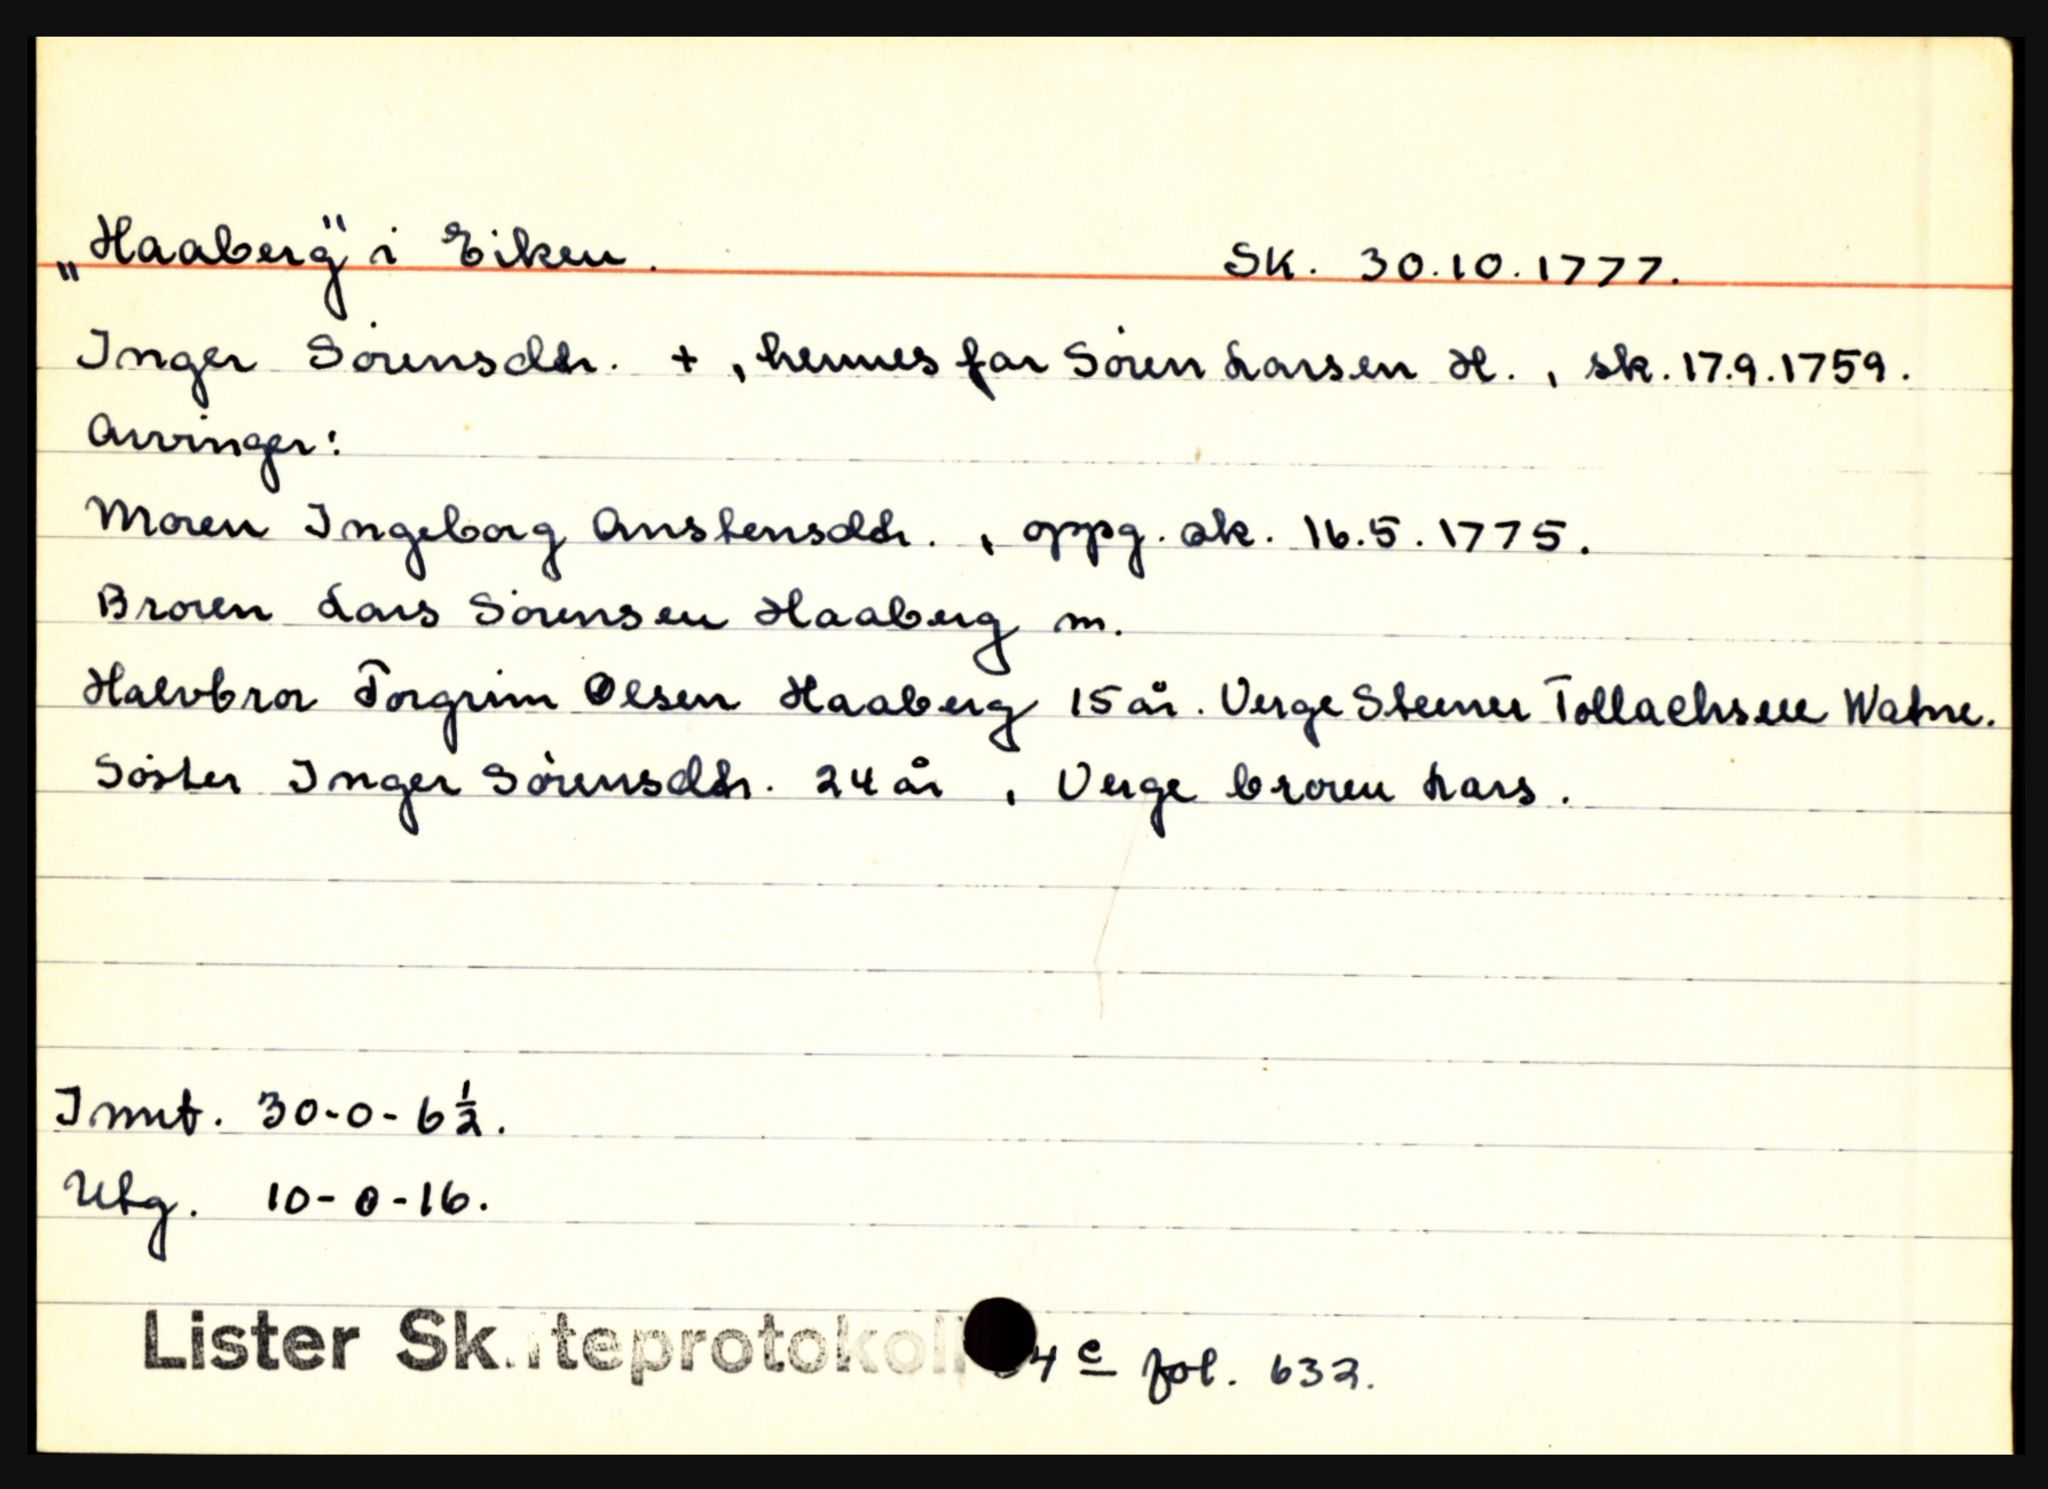 „Haaberg" i Eiken. SK. 30.10.1777.
Inger Sørensdtr. +, hennes far Søren Larsen H., sk. 17.9.1759.
Arvinger:
Moren Ingeborg Anstensdtr., oppg. sk. 16.5.1775.
Broren Lars Sørensen Haaberg m.
Halvbror Torgrim Olsen Haaberg 15 år. Verge Steiner Tollachsen Watne.
Søster Inger Sørensdtr. 24 år, Verge broren Lars.
Innt. 30-0-6 1/2.
Utg. 10-0-16.
Lister Skifteprotokoll 4 c fol. 632.